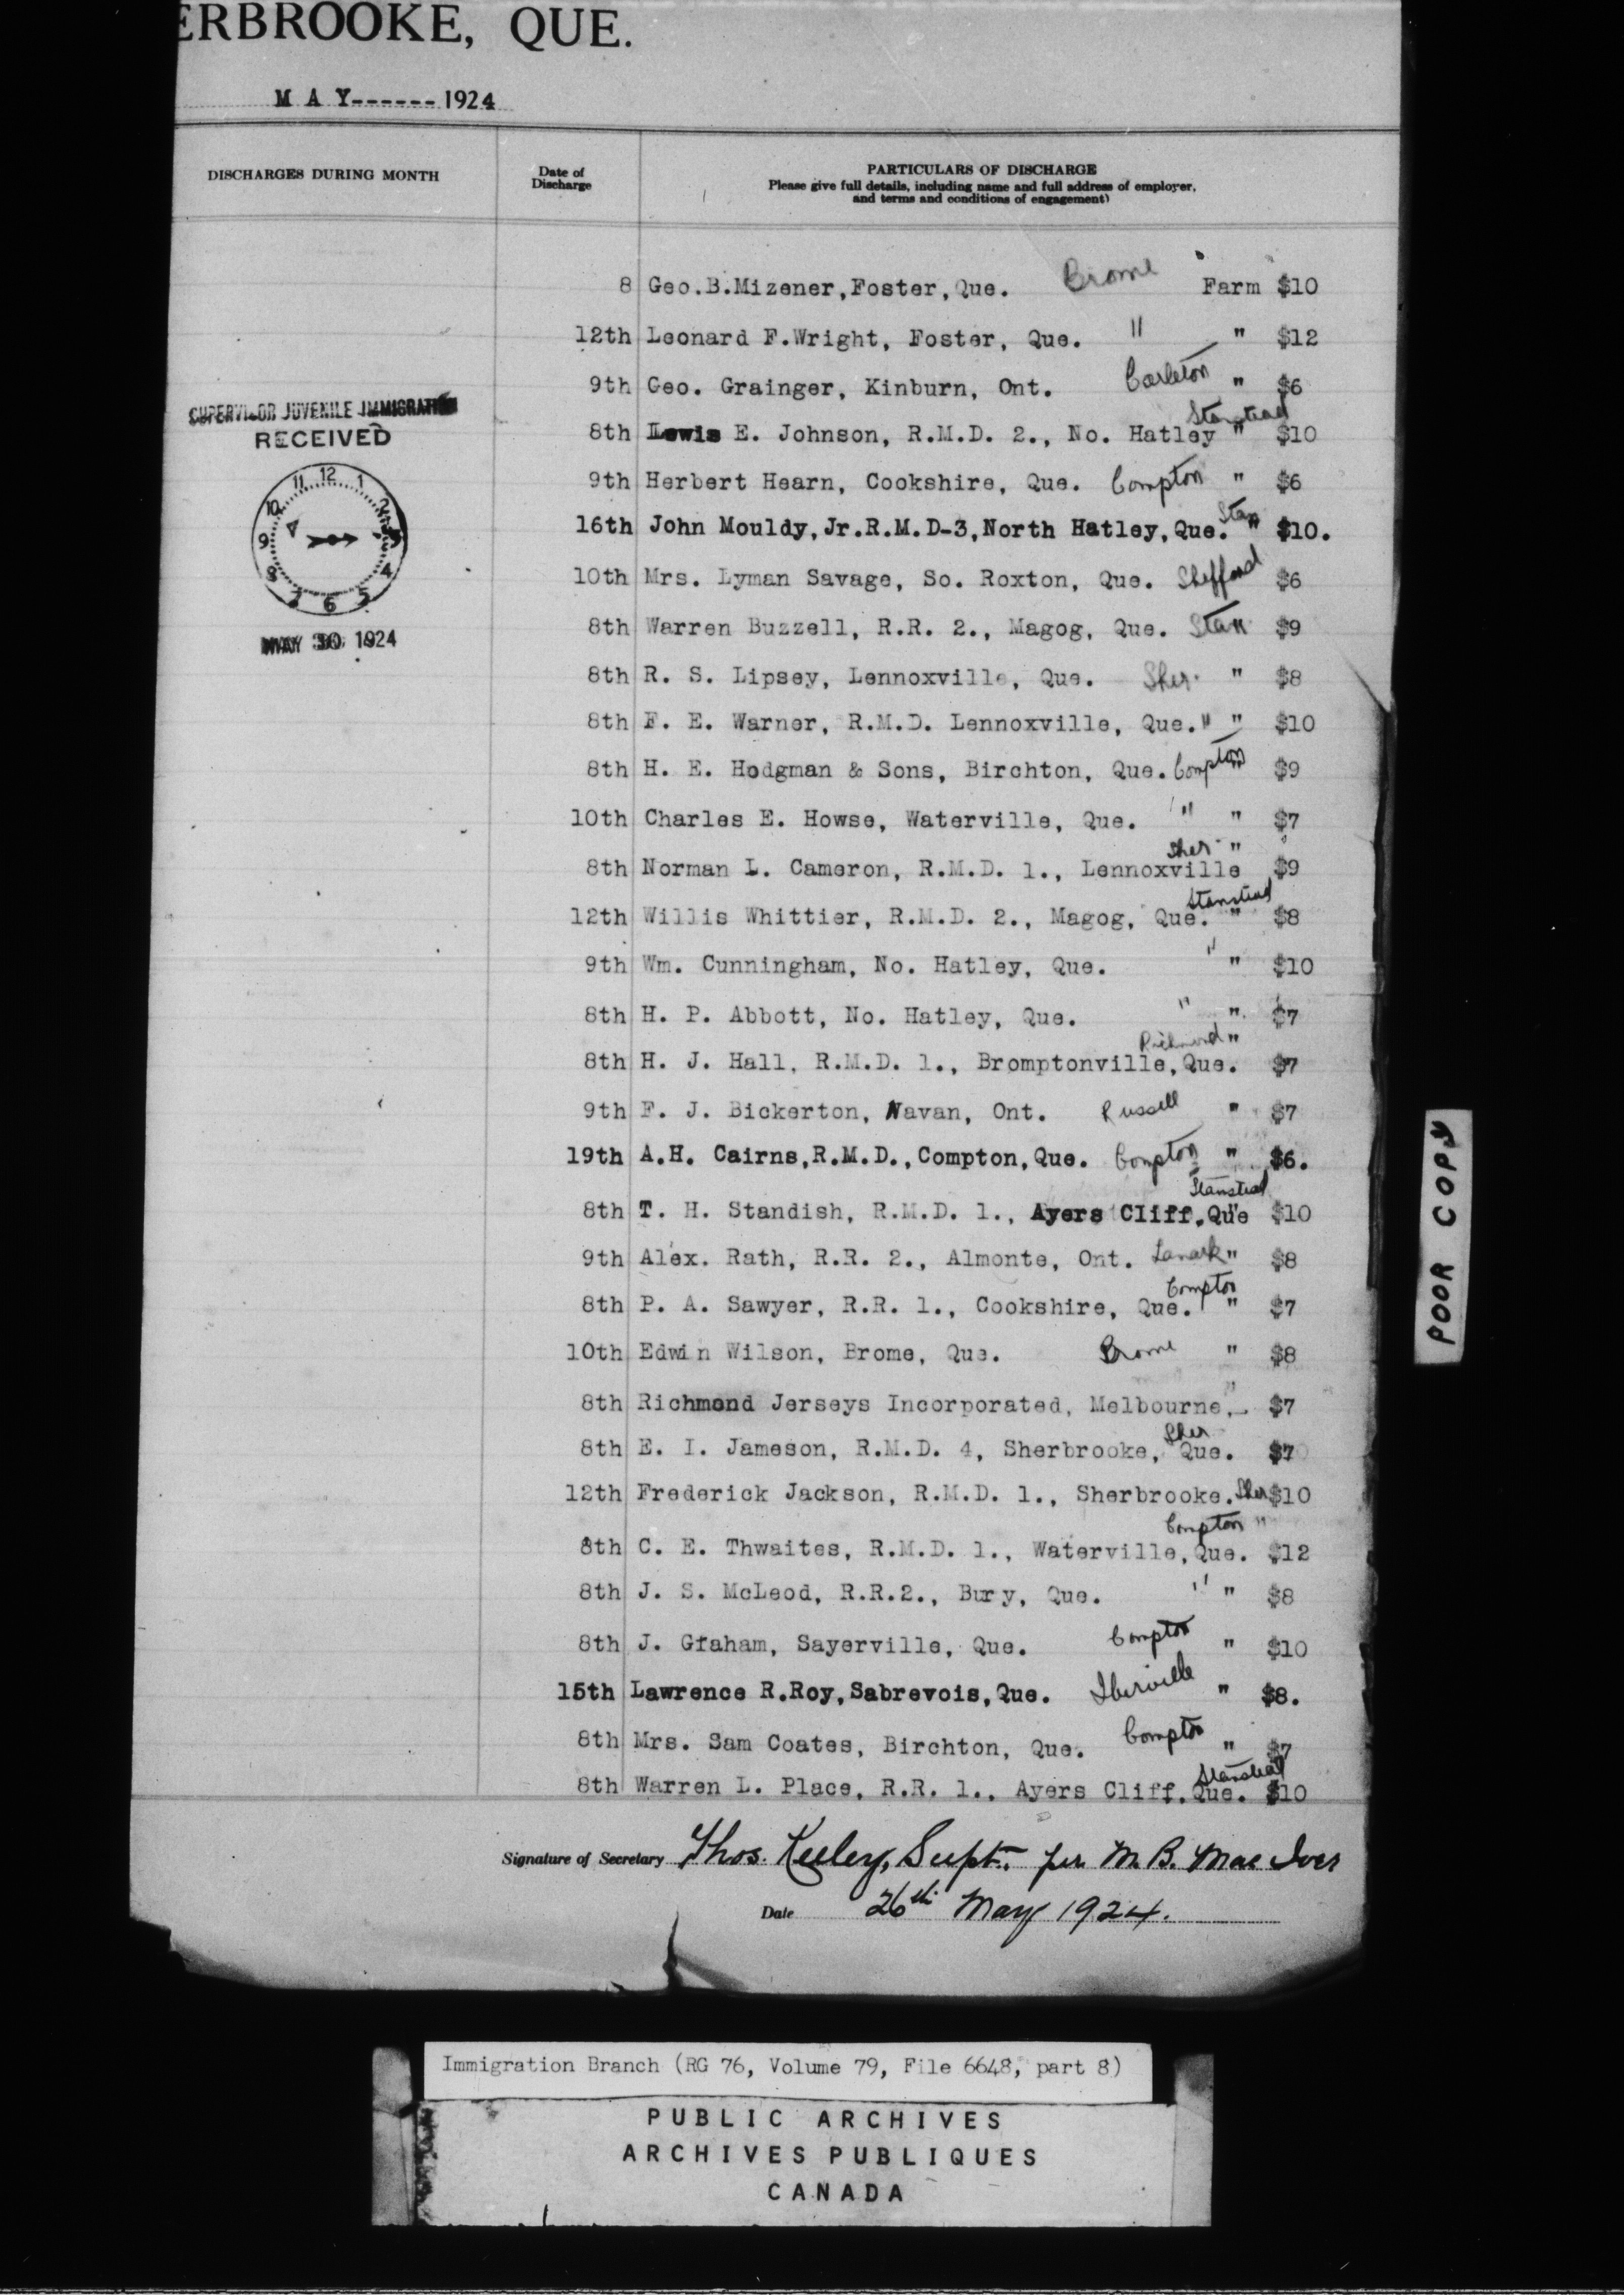 ERBROOKE, QUE.
M A Y------1924
DISCHARGES DURING MONTH
Date of
Discharge
PARTICULARS OF DISCHARGE
Please give full details, including name and full address of employer,
and terms and conditions of engagement)
8 Geo.B.Mizener,Foster,Que. Brome Farm $10
12th Leonard F.Wright, Foster, Que. " " $12
9th Geo. Grainger, Kinburn, Ont. Carleton " $6
8th Lewis E. Johnson, R.M.D. 2., No. Hatley Stanstead " $10
9th Herbert Hearn, Cookshire, Que. Compton " $6
16th John Mouldy,Jr.R.M.D-3,North Hatley,Que. Stan " $10.
10th Mrs. Lyman Savage, So. Roxton, Que. Shefford $6
8th Warren Buzzell, R.R. 2., Magog, Que. Stan " $9
8th R. S. Lipsey, Lennoxville, Que. Sher. " $8
8th F. E. Warner, R.M.D. Lennoxville, Que. " " $10
8th H. E. Hodgman & Sons, Birchton, Que. Compton " $9
10th Charles E. Howse, Waterville, Que. " " $7
8th Norman L. Cameron, R.M.D. 1., Lennoxville Sher " $9
12th Willis Whittier, R.M.D. 2., Magog, Que. Stanstead " $8
9th Wm. Cunningham, No. Hatley, Que. " " $10
8th H. P. Abbott, No. Hatley, Que. " " $7
8th H. J. Hall, R.M.D. 1., Bromptonville,Que. Richmond " $7
9th F. J. Bickerton, Navan, Ont. Russell " $7
19th A.H. Cairns,R.M.D.,Compton,Que. Compton " $6.
8th T. H. Standish, R.M.D. 1., Ayers Cliff,Que Stanstead " $10
9th Alex. Rath, R.R. 2., Almonte, Ont. Lanark " $8
8th P. A. Sawyer, R.R. 1., Cookshire, Que. Compton " $7
10th Edwin Wilson, Brome, Que. Brome " $8
8th Richmond Jerseys Incorporated, Melbourne, " $7
8th E. I. Jameson, R.M.D. 4, Sherbrooke, Que. Sher $7
12th Frederick Jackson, R.M.D. 1., Sherbrooke. Sher $10
8th C. E. Thwaites, R.M.D. 1., Waterville,Que. Compton " $12
8th J. S. McLeod, R.R.2., Bury, Que. " " $8
8th J. Graham, Sayerville, Que. Compton " $10
15th Lawrence R.Roy,Sabrevois,Que. Iberville " $8.
8th Mrs. Sam Coates, Birchton, Que. Compton " $7
8th Warren L. Place, R.R. 1., Ayers Cliff,Que. Stanstead $10
SUPERVISOR JUVENILE IMMIGRATION
RECEIVED
11 12 1
10 2
9 3
8 4
7 6 5
MAY 30 1924
Signature of Secretary Thos. Keeley, Supt. per M. B. Mac Iver
Date 26th May 1924.
POOR COPY
Immigration Branch (RG 76, Volume 79, File 6648, part 8)
PUBLIC ARCHIVES
ARCHIVES PUBLIQUES
CANADA